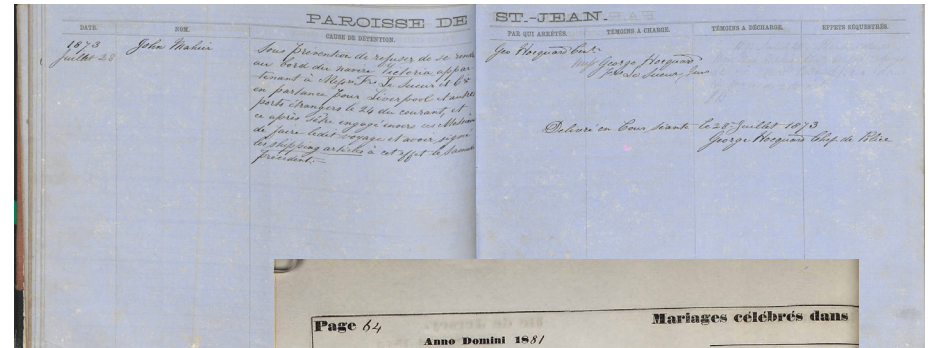 PAROISSE DE ST.-JEAN.
DATE. NOM. CAUSE DE DÉTENTION. PAR QUI ARRÊTÉS. TÉMOINS A CHARGE. TÉMOINS A DÉCHARGE. EFFETS SÉQUESTRÉS.
1873
Juillet 28
John
Sous prévention de refuser de se rendre
au bord du navire Victoria appar-
tenant à Messrs. Fs. Le Sueur et Co
en partance pour Liverpool et autres
ports étrangers le 24 du courant, et
ce après s'être engagé envers
de faire ledit voyage et avoir signé
les shipping articles à cet effet le Samedi
précédent.
Geo Hocquard Cent.
George Hocquard
Fs. Le Sueur
Délivré en Cour Séante le 28 Juillet 1873
George Hocquard Chef de Police
Page 64
Mariages célébrés dans
Anno Domini 1881